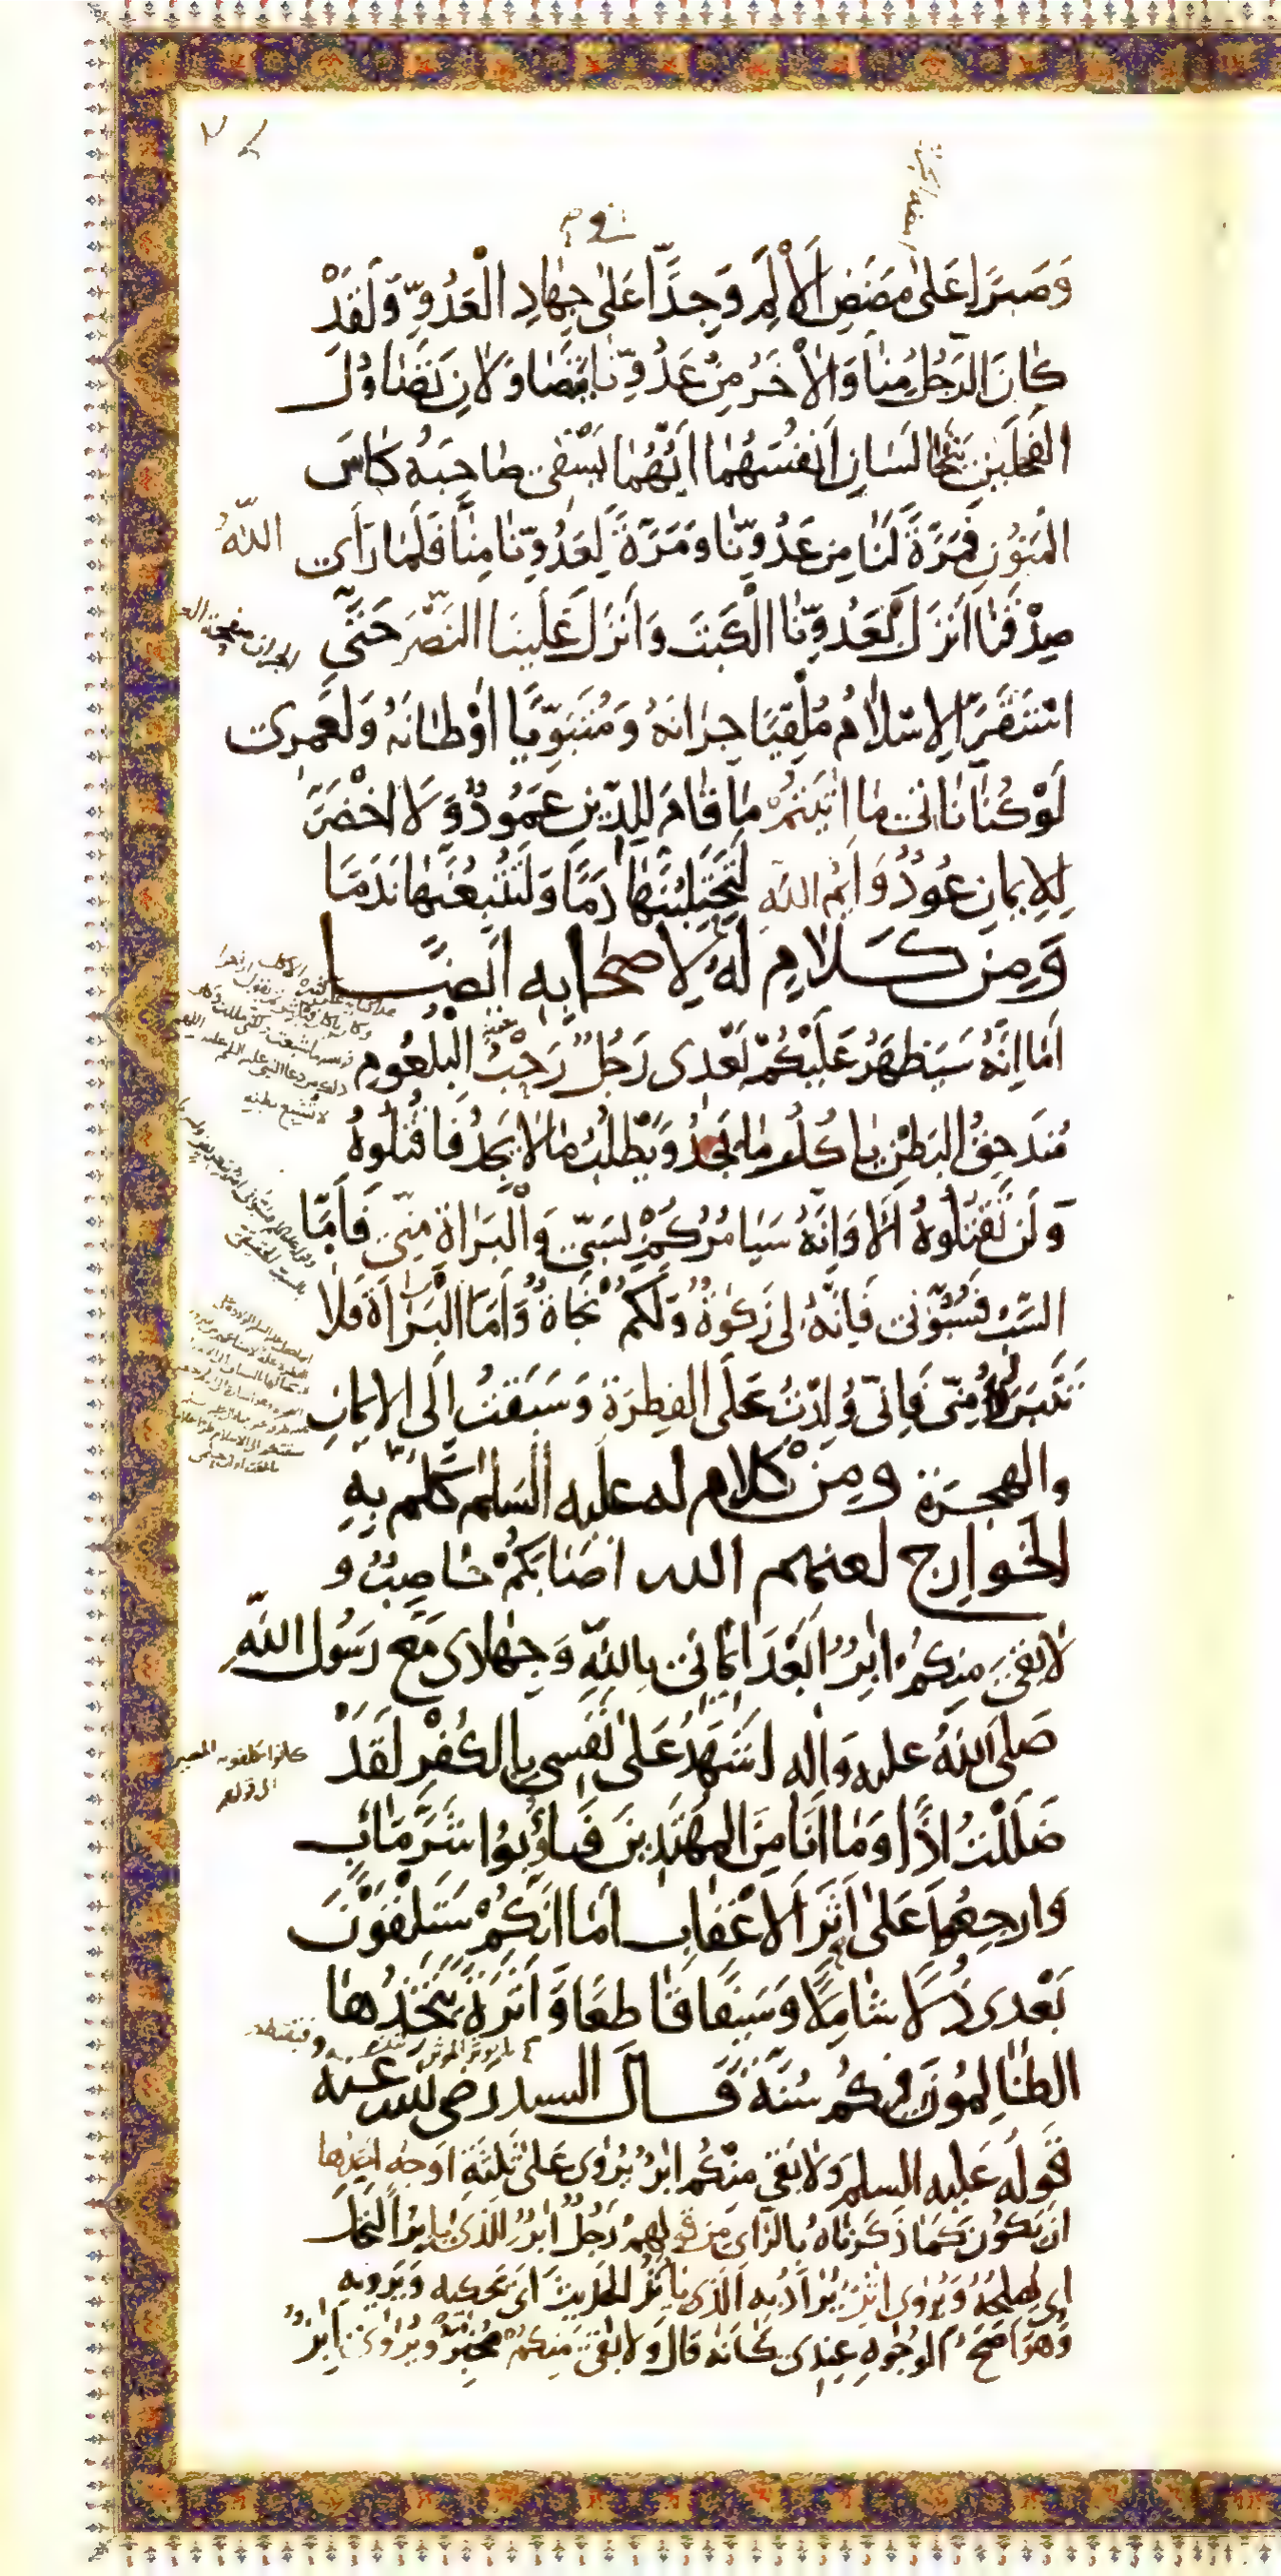 وَصَبْرًا عَلىٰ مَضَضِ الْأَلَمِ وَجِدًّا عَلىٰ جِهَادِ الْعَدُوِّ وَلَقَدْ
كَانَ الرَّجُلُ مِنَّا وَالْآخَرُ مِنْ عَدُوِّنَا يَتَصَاوَلَانِ تَصَاوُلَ
الْفَحْلَيْنِ يَتَخَالَسَانِ أَنْفُسَهُمَا أَيُّهُمَا يَسْقِى صَاحِبَهُ كَأْسَ
الْمَنُونِ فَمَرَّةً لَنَا مِنْ عَدُوِّنَا وَمَرَّةً لِعَدُوِّنَا مِنَّا فَلَمَّا رَأَى اللّٰهُ
صِدْقَنَا أَنْزَلَ لِعَدُوِّنَا الْكَبْتَ وَأَنْزَلَ عَلَيْنَا النَّصْرَ حَتَّى
اسْتَقَرَّ الْإِسْلَامُ مُلْقِيًا جِرَانَهُ وَمُتَبَوِّيًا أَوْطَانَهُ وَلَعَمْرِى
لَوْ كُنَّا نَأْتِى مَا أَتَيْتُمْ مَا قَامَ لِلدِّينِ عَمُودٌ وَلَا اخْضَرَّ
لِلْإِيمَانِ عُودٌ وَايْمُ اللّٰهِ لَتَحْتَلِبُنَّهَا دَمًا وَلَتُتْبِعُنَّهَا نَدَمًا
وَمِنْ كَلَامٍ لَهُ لِأَصْحَابِهِ أَيْضًا
أَمَا إِنَّهُ سَيَظْهَرُ عَلَيْكُمْ بَعْدِى رَجُلٌ رَحْبُ الْبُلْعُومِ
مُنْدَحِقُ الْبَطْنِ يَأْكُلُ مَا يَجِدُ وَيَطْلُبُ مَا لَا يَجِدُ فَاقْتُلُوهُ
وَلَنْ تَقْتُلُوهُ أَلَا وَإِنَّهُ سَيَأْمُرُكُمْ بِسَبِّى وَالْبَرَاءَةِ مِنِّى فَأَمَّا
السَّبُّ فَسُبُّونِى فَإِنَّهُ لِى زَكٰوةٌ وَلَكُمْ نَجَاةٌ وَأَمَّا الْبَرَاءَةُ فَلَا
تَتَبَرَّءُوا مِنِّى فَإِنِّى وُلِدْتُ عَلَى الْفِطْرَةِ وَسَبَقْتُ إِلَى الْإِيمَانِ
وَالْهِجْرَةِ وَمِنْ كَلَامٍ لَهُ عَلَيْهِ السَّلٰمُ كَلَّمَ بِهِ
الْخَوَارِجَ لَعَنَهُمُ اللّٰهُ أَصَابَكُمْ حَاصِبٌ وَ
لَا بَقِىَ مِنْكُمْ اٰبِرٌ أَبَعْدَ إِيمَانِى بِاللّٰهِ وَجِهَادِى مَعَ رَسُولِ اللّٰهِ
صَلَّى اللّٰهُ عَلَيْهِ وَاٰلِهِ أَشْهَدُ عَلىٰ نَفْسِى بِالْكُفْرِ لَقَدْ
ضَلَلْتُ إِذًا وَمَا أَنَا مِنَ الْمُهْتَدِينَ فَأُوبُوا شَرَّ مَاٰبٍ
وَارْجِعُوا عَلىٰ أَثَرِ الْأَعْقَابِ أَمَا إِنَّكُمْ سَتَلْقَوْنَ
بَعْدِى ذُلًّا شَامِلًا وَسَيْفًا قَاطِعًا وَأَثَرَةً يَتَّخِذُهَا
الظَّالِمُونَ فِيكُمْ سُنَّةً قَالَ السيد رَضِىَ اللّٰهُ عنه
قَوْلُهُ عَلَيْهِ السلم وَلَا بَقِىَ مِنْكُمْ اٰبِرٌ يُرْوٰى عَلىٰ ثَلٰثَةِ أَوْجُهٍ أَحَدُهَا
أَنْ يَكُونَ كَمَا ذَكَرْنَاهُ بِالرَّاءِ مِنْ قولهم رَجُلٌ اٰبِرٌ لِلَّذِى يَأْبِرُ النَّخْلَ
أَىْ يُصْلِحُهُ وَيُرْوٰى اٰثِرٌ يُرَادُ بِهِ الَّذِى يَأْثِرُ الْحَدِيثَ أَىْ يَحْكِيهِ وَيَرْوِيهِ
وَهُوَ أَصَحُّ الْوُجُوهِ عِنْدِى كَأَنَّهُ قَالَ وَلَا بَقِىَ مِنْكُمْ مُخْبِرٌ وَيُرْوٰى اٰبِزٌ